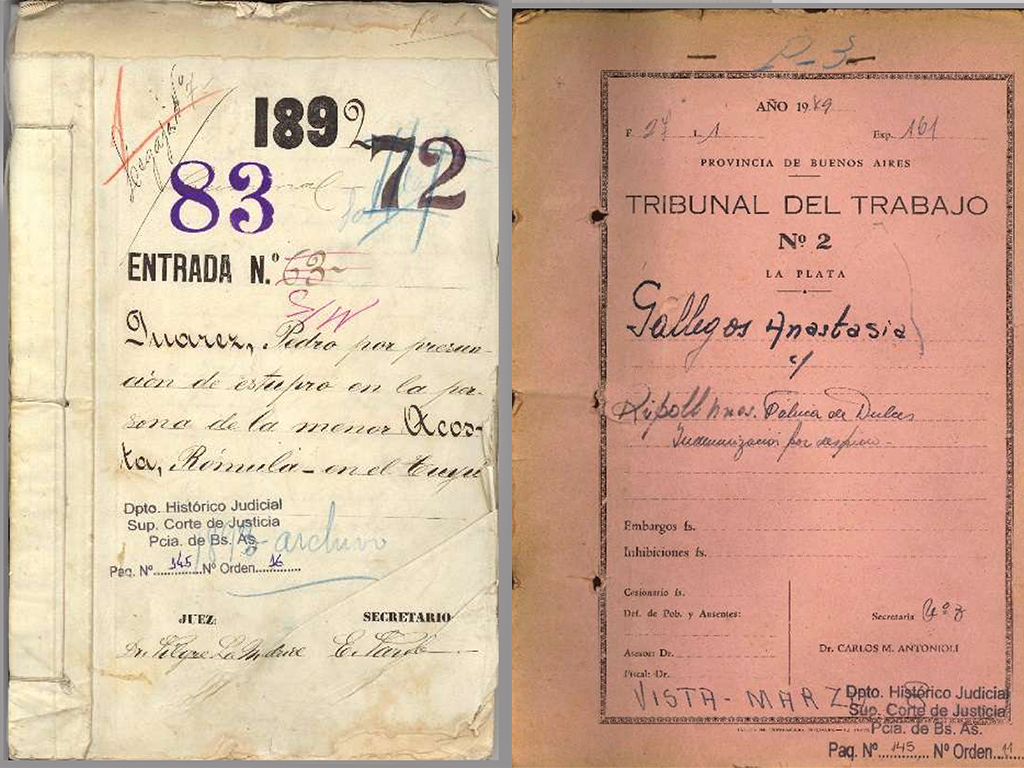 1892
72
83
ENTRADA N.º 63-
Juarez, Pedro por presun-
ción de estupro en la per-
sona de la menor Acos-
ta, Rómula - en el Tuyú
Dpto. Histórico Judicial
Sup. Corte de Justicia
Pcia. de Bs. As.
archivo
Paq. Nº 145 Nº Orden 16
JUEZ:
SECRETARIO
Dr.
E.
P-3-
AÑO 1949
F. 27 L. 1 Exp. 161
PROVINCIA DE BUENOS AIRES
TRIBUNAL DEL TRABAJO
Nº 2
LA PLATA
Gallegos Anastasia
c/
Ripoll Hnos. Fábrica de Dulces
Indemnización por despido
Embargos fs.
Inhibiciones fs.
Cesionario fs.
Def. de Pob. y Ausentes:
Secretaria Nº 3
Asesor: Dr.
Dr. CARLOS M. ANTONIOLI
Fiscal: Dr.
VISTA - MARZO
Dpto. Histórico Judicial
Sup. Corte de Justicia
Pcia. de Bs. As.
Paq. Nº 145 Nº Orden 11